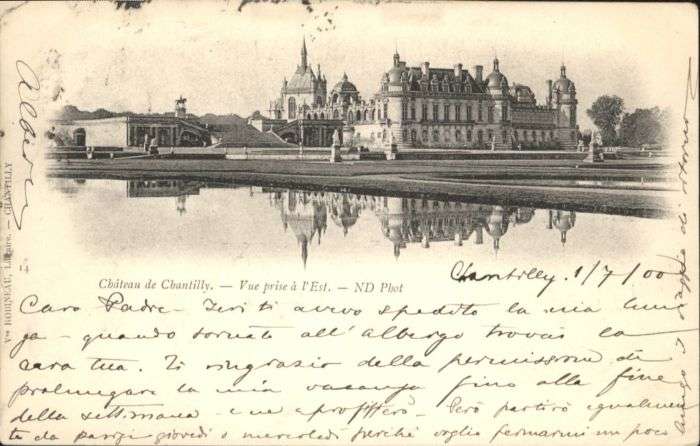 Château de Chantilly. — Vue prise à l'Est. — ND Phot
Vve ROBINEAU, Libraire. — CHANTILLY
Chantilly 1/7/00
Caro Padre — Ieri ti avevo spedito la mia lun
ga — quando tornato all'albergo trovai la
cara tua. Ti ringrazio della permissione di
prolungare la mia vacanza fino alla fine
della settimana e ne approfitterò — Però partirò egualmen
te da Parigi giovedì o mercoledì perché voglio fermarmi un poco
viaggio di
Alber